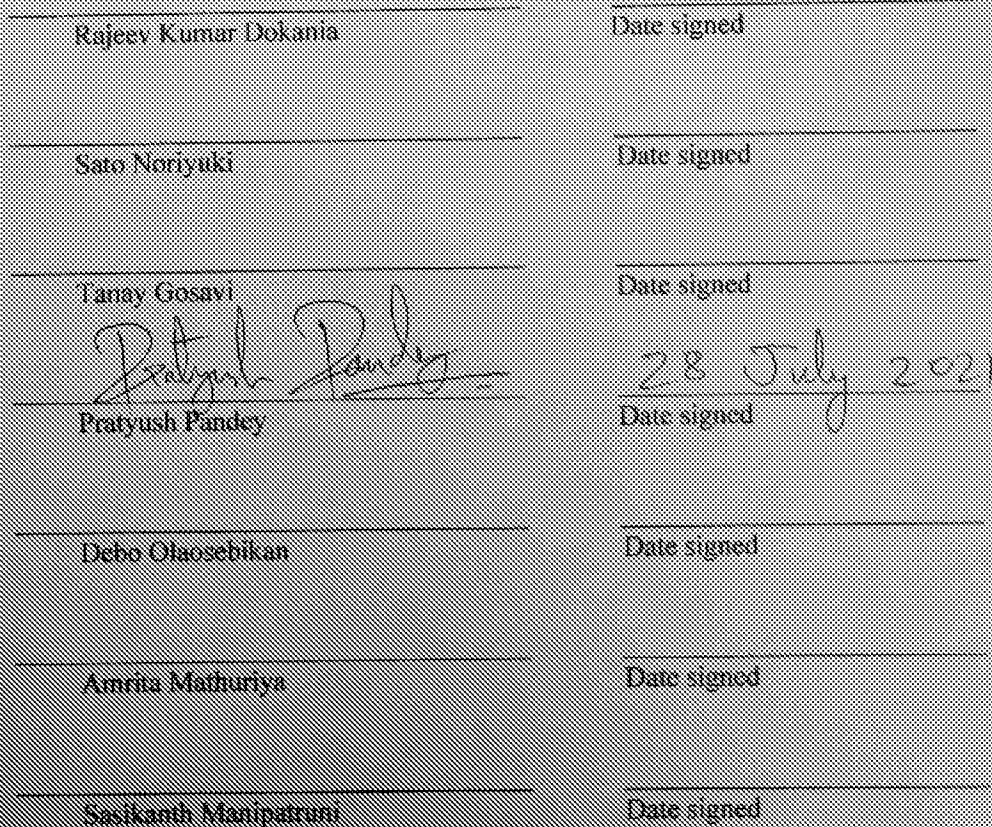 Rajeev Kumar Dokania Date signed
Sato Noriyuki Date signed
Tanay Gosavi Date signed
Pratyush Pandey 28 July 2021
Pratyush Pandey Date signed
Debo Olaosebikan Date signed
Amrita Mathuriya Date signed
Sasikanth Manipatruni Date signed